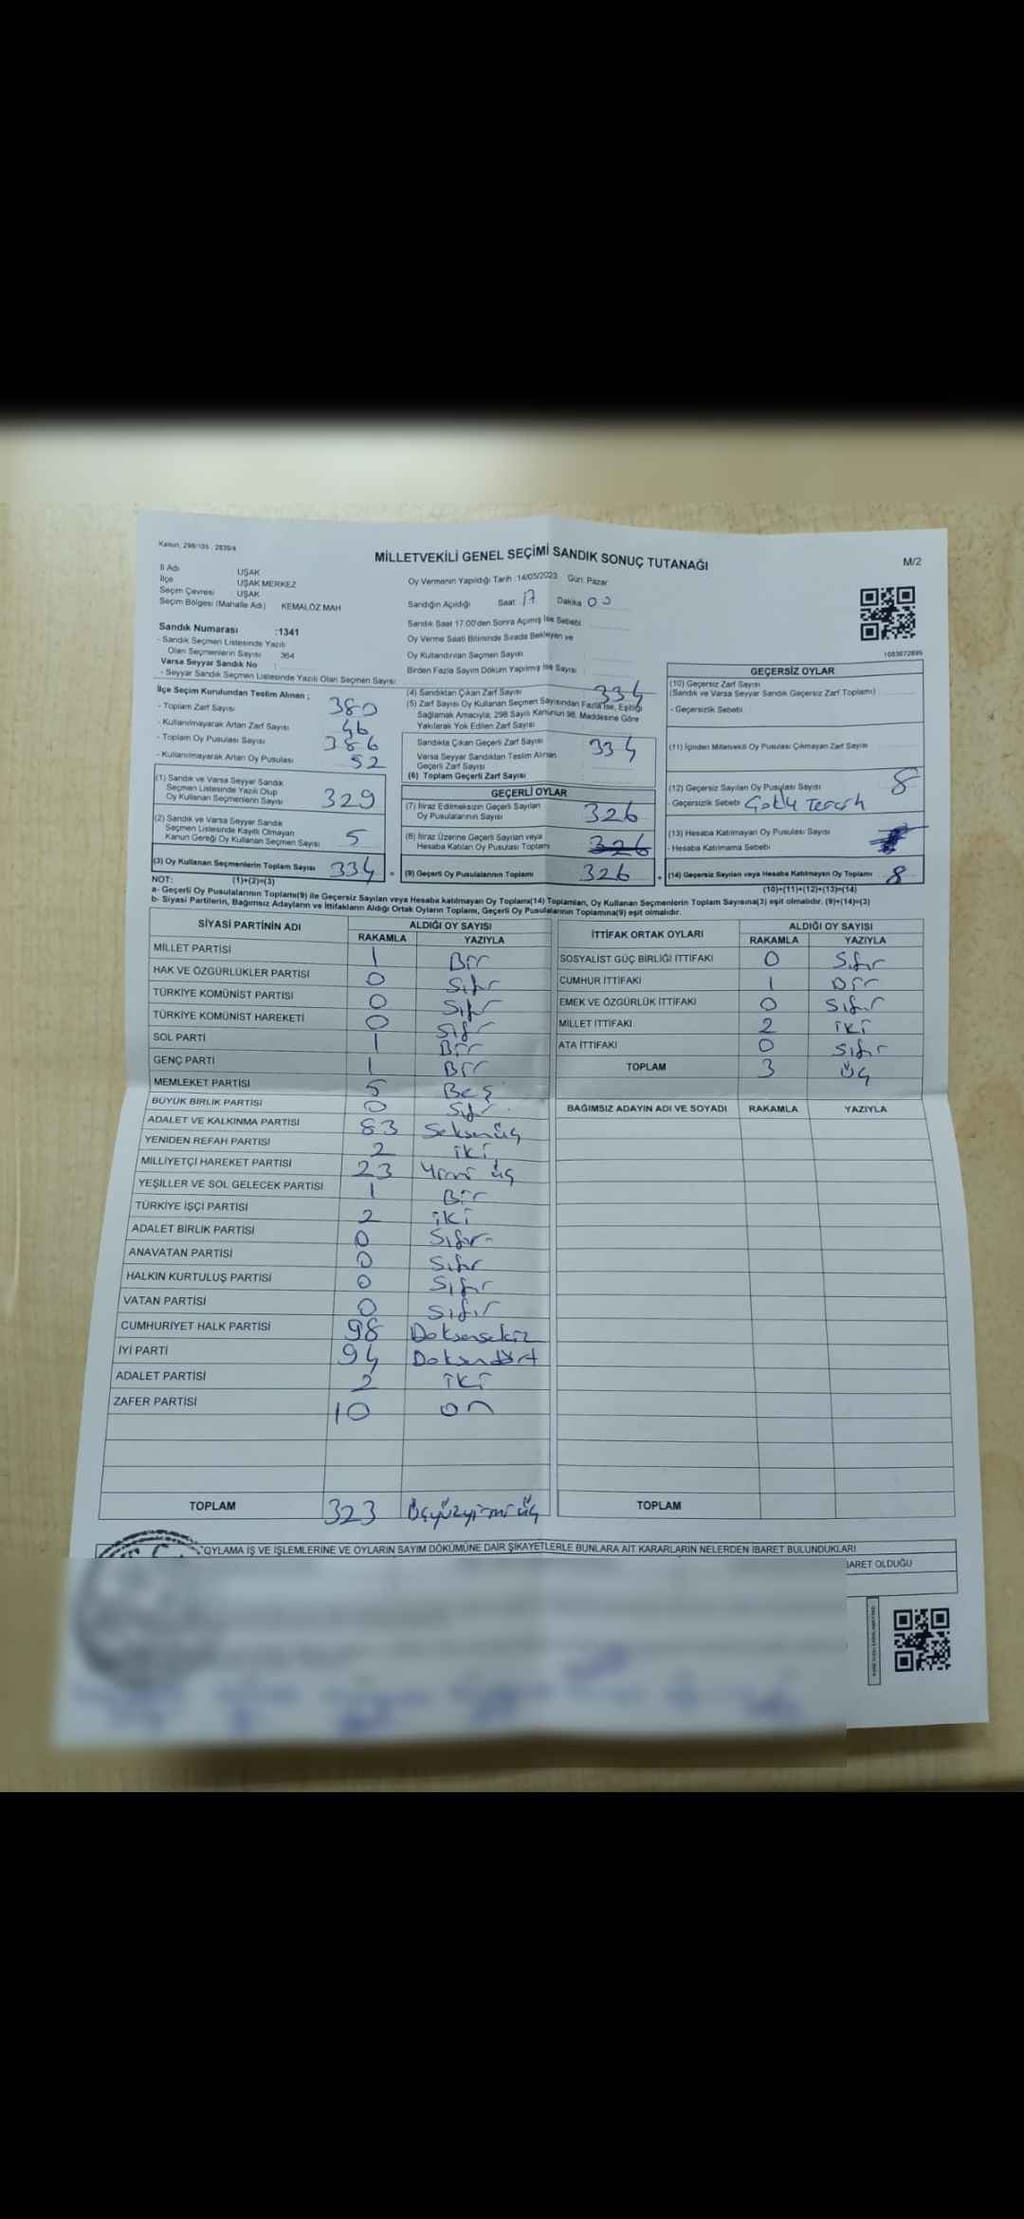 Kanun: 298/105 - 2839/4
MİLLETVEKİLİ GENEL SEÇİMİ SANDIK SONUÇ TUTANAĞI
M/2
İl Adı UŞAK
İlçe UŞAK MERKEZ
Seçim Çevresi UŞAK
Seçim Bölgesi (Mahalle Adı) KEMALÖZ MAH
Oy Vermenin Yapıldığı Tarih :14/05/2023 Gün: Pazar
Sandığın Açıldığı Saat 17 Dakika 00
Sandık Saat 17.00'den Sonra Açılmış İse Sebebi
Oy Verme Saati Bitiminde Sırada Bekleyen ve
Oy Kullandırılan Seçmen Sayısı
Birden Fazla Sayım Döküm Yapılmış İse Sayısı
Sandık Numarası :1341
- Sandık Seçmen Listesinde Yazılı
Olan Seçmenlerin Sayısı 364
Varsa Seyyar Sandık No :
- Seyyar Sandık Seçmen Listesinde Yazılı Olan Seçmen Sayısı
1083672895
İlçe Seçim Kurulundan Teslim Alınan ;
- Toplam Zarf Sayısı 380
- Kullanılmayarak Artan Zarf Sayısı 46
- Toplam Oy Pusulası Sayısı 386
- Kullanılmayarak Artan Oy Pusulası 52
(1) Sandık ve Varsa Seyyar Sandık
Seçmen Listesinde Yazılı Olup
Oy Kullanan Seçmenlerin Sayısı 329
(2) Sandık ve Varsa Seyyar Sandık
Seçmen Listesinde Kayıtlı Olmayan
Kanun Gereği Oy Kullanan Seçmen Sayısı 5
(3) Oy Kullanan Seçmenlerin Toplam Sayısı 334
(4) Sandıktan Çıkan Zarf Sayısı 334
(5) Zarf Sayısı Oy Kullanan Seçmen Sayısından Fazla İse, Eşitliği
Sağlamak Amacıyla; 298 Sayılı Kanunun 98. Maddesine Göre
Yakılarak Yok Edilen Zarf Sayısı
Sandıkta Çıkan Geçerli Zarf Sayısı 334
Varsa Seyyar Sandıktan Teslim Alınan
Geçerli Zarf Sayısı
(6) Toplam Geçerli Zarf Sayısı
GEÇERLİ OYLAR
(7) İtiraz Edilmeksizin Geçerli Sayılan
Oy Pusulalarının Sayısı 326
(8) İtiraz Üzerine Geçerli Sayılan veya
Hesaba Katılan Oy Pusulası Toplamı 326
= (9) Geçerli Oy Pusulalarının Toplamı 326 +
GEÇERSİZ OYLAR
(10) Geçersiz Zarf Sayısı
(Sandık ve Varsa Seyyar Sandık Geçersiz Zarf Toplamı)
- Geçersizlik Sebebi
(11) İçinden Milletvekili Oy Pusulası Çıkmayan Zarf Sayısı
(12) Geçersiz Sayılan Oy Pusulası Sayısı 8
- Geçersizlik Sebebi Çoklu Tercih
(13) Hesaba Katılmayan Oy Pusulası Sayısı
- Hesaba Katılmama Sebebi
(14) Geçersiz Sayılan veya Hesaba Katılmayan Oy Toplamı 8
NOT: (1)+(2)=(3)
(10)+(11)+(12)+(13)=(14)
a- Geçerli Oy Pusulalarının Toplamı(9) ile Geçersiz Sayılan veya Hesaba katılmayan Oy Toplamı(14) Toplamları, Oy Kullanan Seçmenlerin Toplam Sayısına(3) eşit olmalıdır. (9)+(14)=(3)
b- Siyasi Partilerin, Bağımsız Adayların ve İttifakların Aldığı Ortak Oyların Toplamı, Geçerli Oy Pusulalarının Toplamına(9) eşit olmalıdır.
SİYASİ PARTİNİN ADI ALDIĞI OY SAYISI
RAKAMLA YAZIYLA
MİLLET PARTİSİ 1 Bir
HAK VE ÖZGÜRLÜKLER PARTİSİ 0 Sıfır
TÜRKİYE KOMÜNİST PARTİSİ 0 Sıfır
TÜRKİYE KOMÜNİST HAREKETİ 0 Sıfır
SOL PARTİ 1 Bir
GENÇ PARTİ 1 Bir
MEMLEKET PARTİSİ 5 Beş
BÜYÜK BİRLİK PARTİSİ 0 Sıfır
ADALET VE KALKINMA PARTİSİ 83 Seksenüç
YENİDEN REFAH PARTİSİ 2 iki
MİLLİYETÇİ HAREKET PARTİSİ 23 Yirmi üç
YEŞİLLER VE SOL GELECEK PARTİSİ 1 Bir
TÜRKİYE İŞÇİ PARTİSİ 2 iki
ADALET BİRLİK PARTİSİ 0 Sıfır
ANAVATAN PARTİSİ 0 Sıfır
HALKIN KURTULUŞ PARTİSİ 0 Sıfır
VATAN PARTİSİ 0 Sıfır
CUMHURİYET HALK PARTİSİ 98 Doksansekiz
İYİ PARTİ 94 Doksandört
ADALET PARTİSİ 2 iki
ZAFER PARTİSİ 10 on
TOPLAM 323 Üçyüzyirmi üç
İTTİFAK ORTAK OYLARI ALDIĞI OY SAYISI
RAKAMLA YAZIYLA
SOSYALİST GÜÇ BİRLİĞİ İTTİFAKI 0 Sıfır
CUMHUR İTTİFAKI 1 Bir
EMEK VE ÖZGÜRLÜK İTTİFAKI 0 Sıfır
MİLLET İTTİFAKI 2 iki
ATA İTTİFAKI 0 Sıfır
TOPLAM 3 Üç
BAĞIMSIZ ADAYIN ADI VE SOYADI RAKAMLA YAZIYLA
TOPLAM
OYLAMA İŞ VE İŞLEMLERİNE VE OYLARIN SAYIM DÖKÜMÜNE DAİR ŞİKAYETLERLE BUNLARA AİT KARARLARIN NELERDEN İBARET BULUNDUKLARI
İBARET OLDUĞU